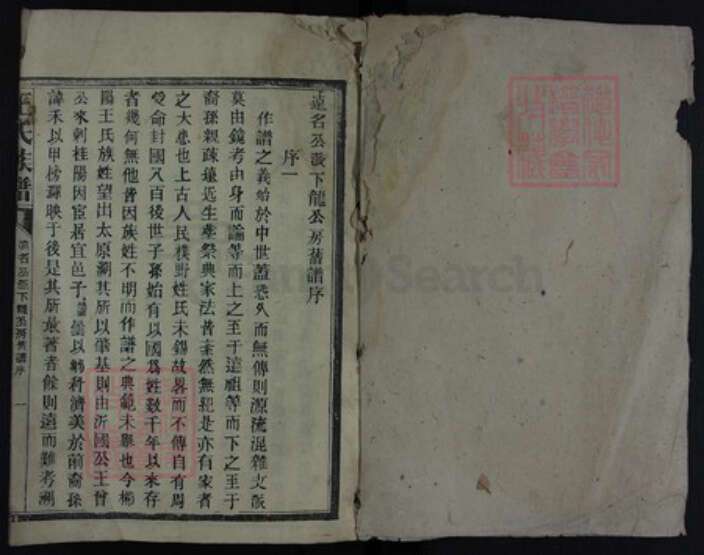 遠名公派下龍公房舊譜序
序一
作譜之義始於中世蓋恐久而無傳則源流混雜支派
莫由鏡考由身而諭等而上之至于遠祖等而下之至于
裔孫親疎遠近生產祭典家法昔桼然無犯是亦有家者
之大患也上古人民樸野姓氏未錫故畧而不傳自有周
受命封國八百後世子孫始有以國為姓數千年以來存
者幾何無他皆因族姓不明而作譜之典範未舉也今
陽王氏族姓望出太原溯其所以肇基則由沂國公王曾
公來刺桂陽因宦居宜邑子以科濟美於前裔孫
諱禾以甲榜蘇映于後是其所最著者餘則遠而難考溯
王氏族譜
遠名公派下龍公房舊譜序
一